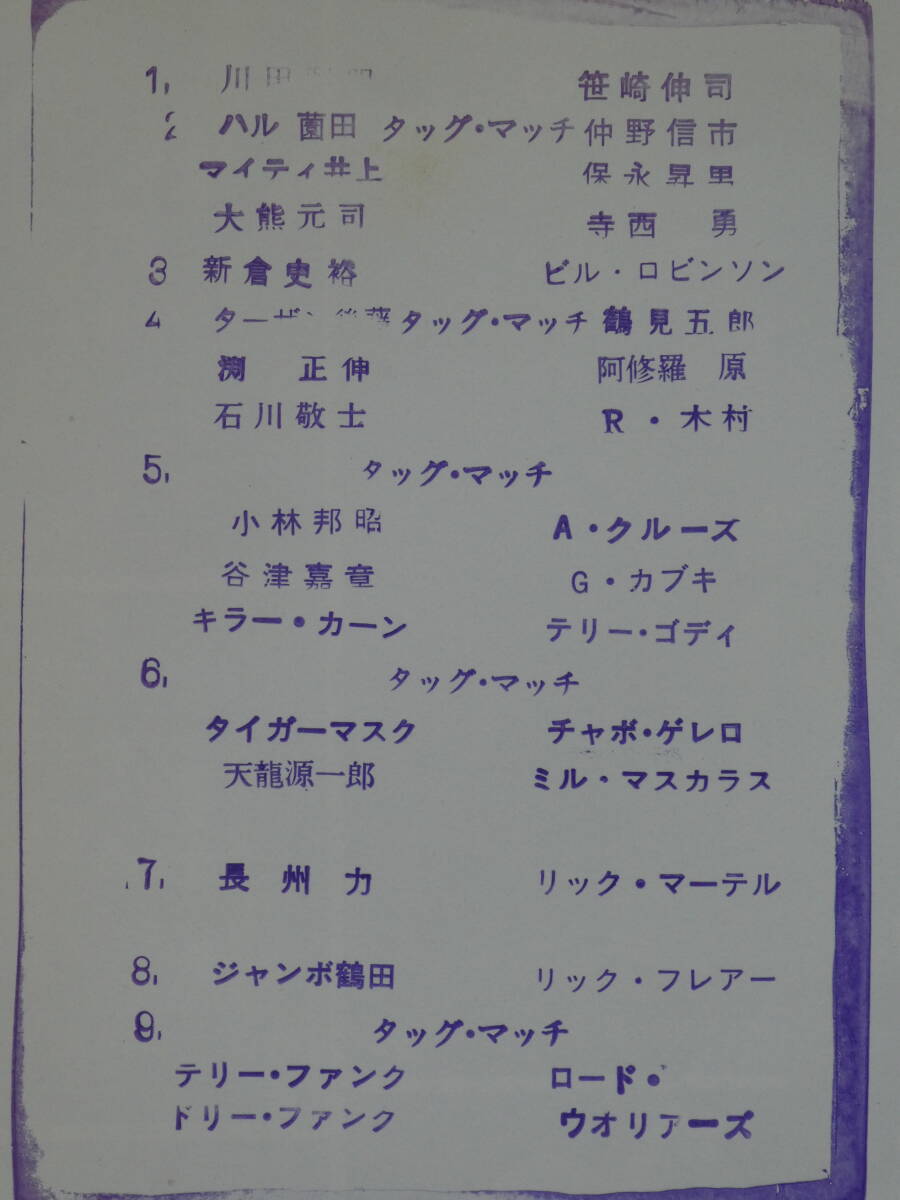 1, 川田 笹崎伸司
2 ハル薗田 タッグ・マッチ 仲野信市
マイティ井上 保永昇男
大熊元司 寺西 勇
3 新倉史裕 ビル・ロビンソン
4 ターザン後藤 タッグ・マッチ 鶴見五郎
渕 正伸 阿修羅 原
石川敬士 R・木村
5, タッグ・マッチ
小林邦昭 A・クルーズ
谷津嘉章 G・カブキ
キラー・カーン テリー・ゴディ
6, タッグ・マッチ
タイガーマスク チャボ・ゲレロ
天龍源一郎 ミル・マスカラス
7, 長州力 リック・マーテル
8, ジャンボ鶴田 リック・フレアー
9, タッグ・マッチ
テリー・ファンク ロード・
ドリー・ファンク ウオリアーズ